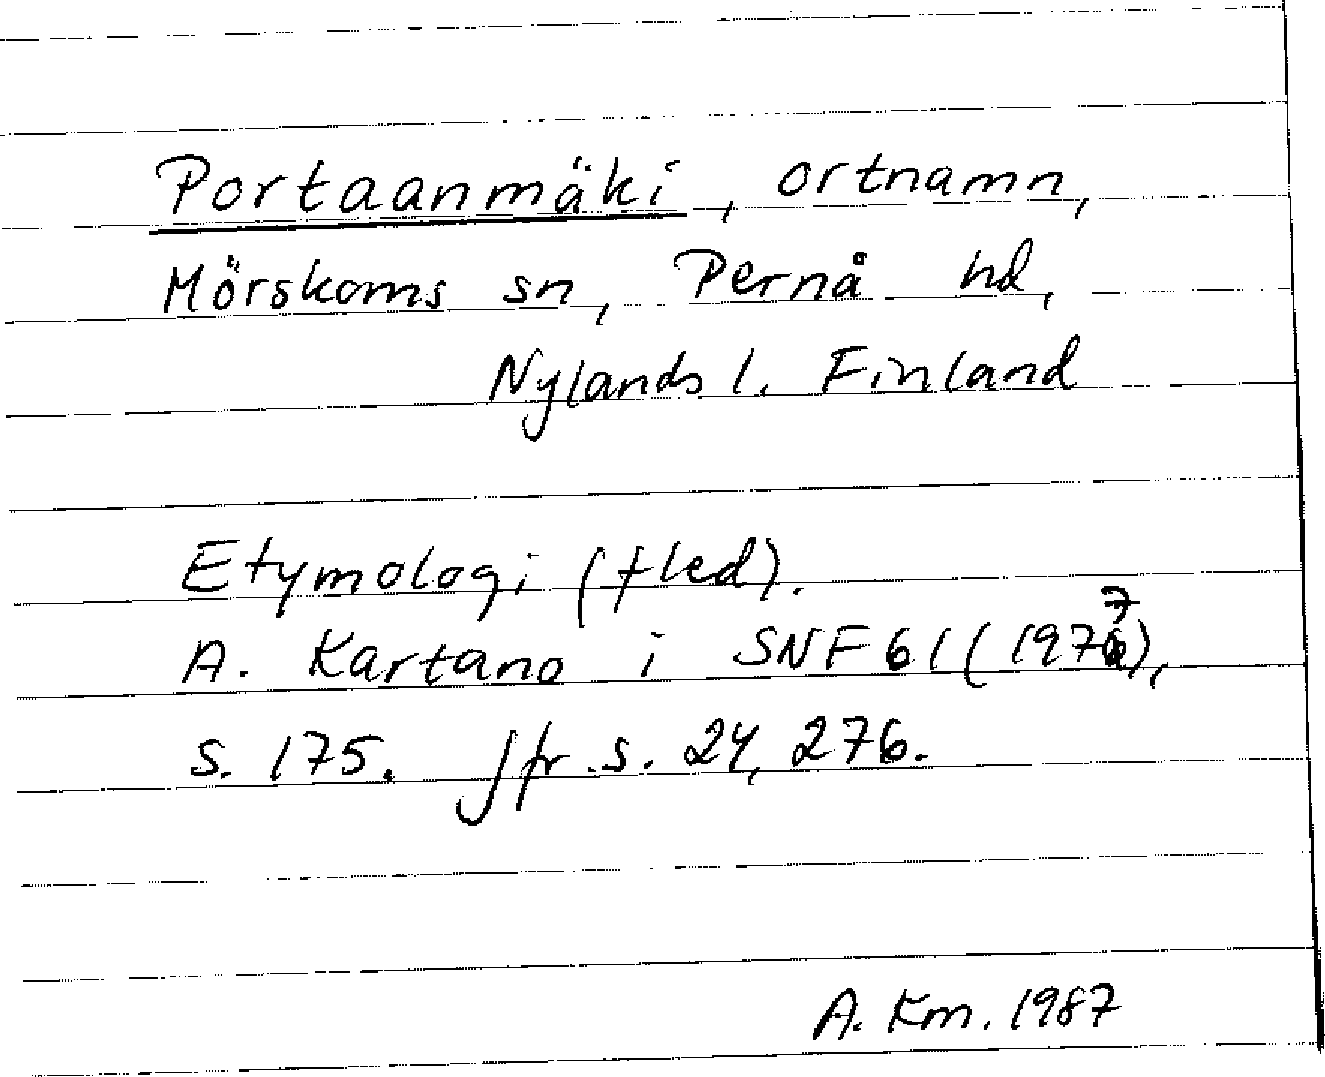 Portaanmäki, ortnamn,
Mörskoms sn, Pernå hd,
Nylands l. Finland
Etymologi (fled).
A. Kartano i SNF 61 (1977),
s. 175. Jfr s. 24, 276.
A. Km. 1987